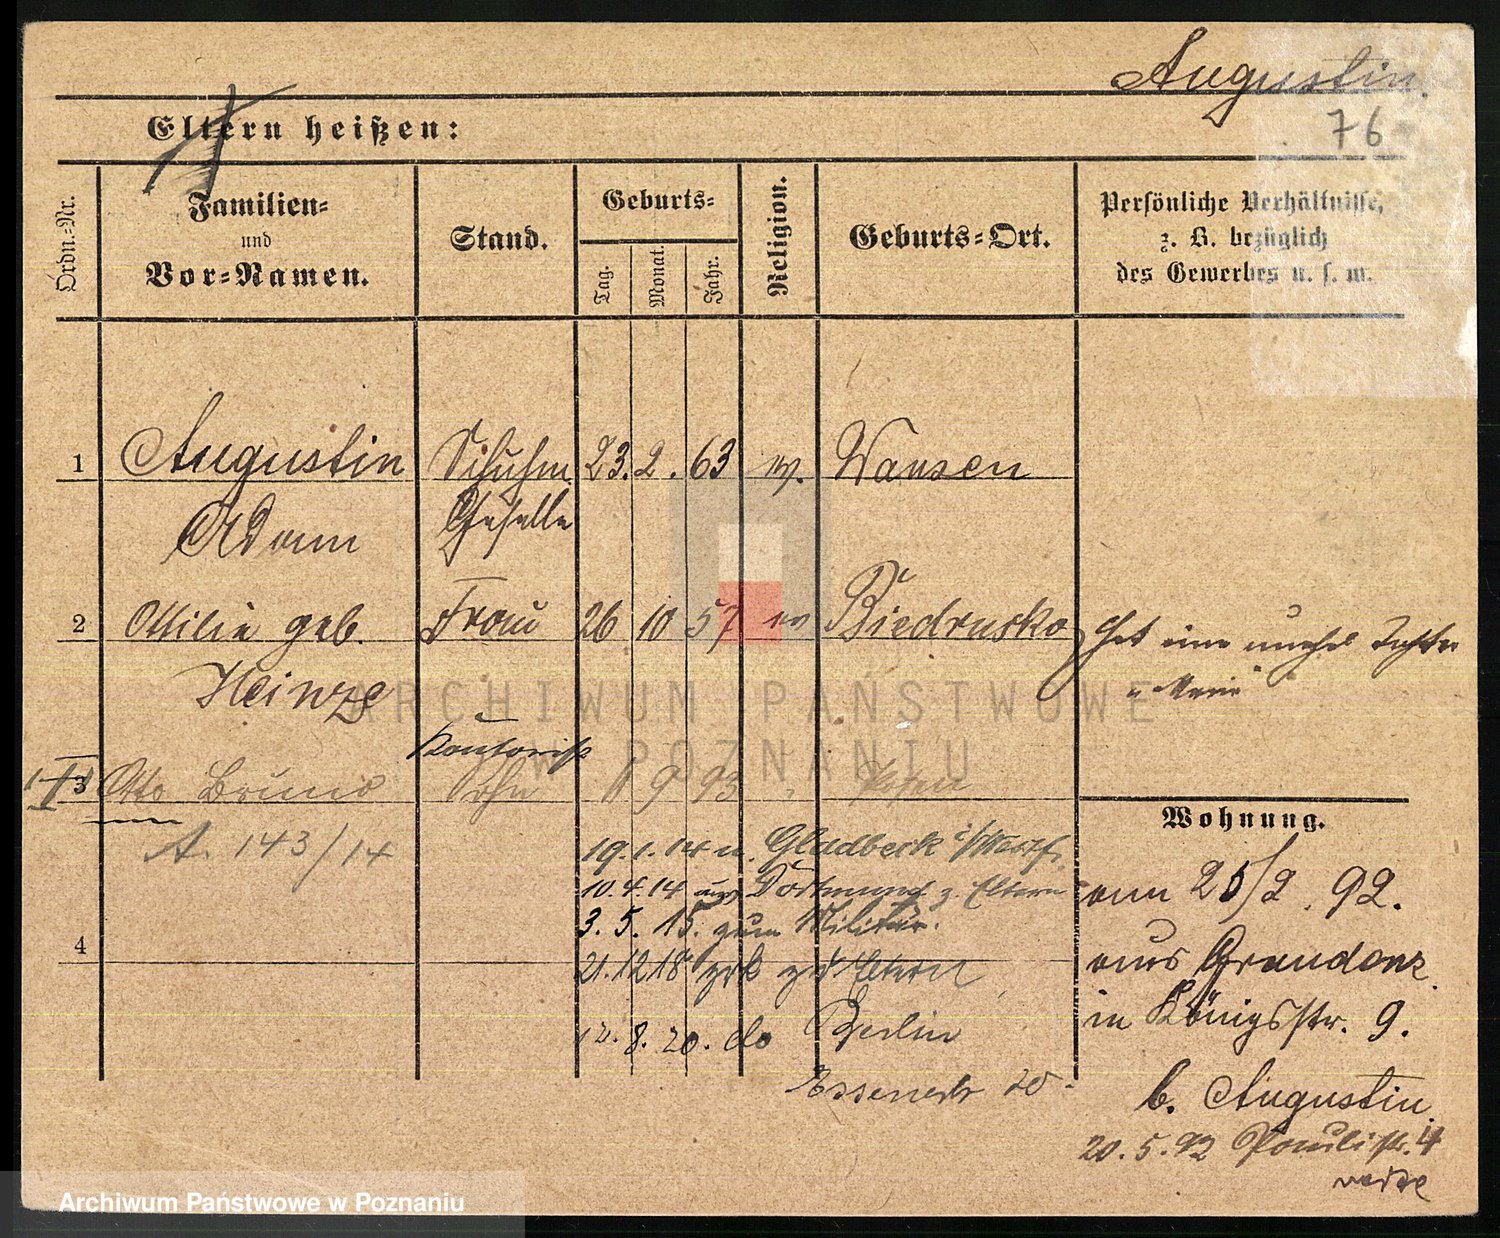 Augustin.
76
Eltern heißen:
Ordn.-Nr.
Familien-
und
Vor-Namen.
Stand.
Geburts-
Tag.
Monat.
Jahr.
Religion.
Geburts-Ort.
Persönliche Verhältnisse,
z. B. bezüglich
des Gewerbes u. s. w.
1 Augustin Schuhm. 23. 2. 63 ev. Wansen
Adam Geselle
2 Ottilie geb. Frau 26 10 57 ev Biedrusko hat eine unehel Tochter
Heinze
ARCHIWUM PAŃSTWOWE
W POZNANIU
Kontorist
3 Otto Bruno Sohn 1 9 93 " Posen
A. 143/14
Wohnung.
19.1.14 n. Gladbeck i/Westf.
10.4.14 aus Dortmund z. Eltern
3. 5. 15. zum Militär.
4
21.12 18 zrk zu Eltern
8. 20. do Berlin
Essenerstr
vom 25/2. 92.
aus Graudenz
in Königsstr. 9.
b. Augustin.
20. 5. 92 Paulistr. 4
Archiwum Państwowe w Poznaniu